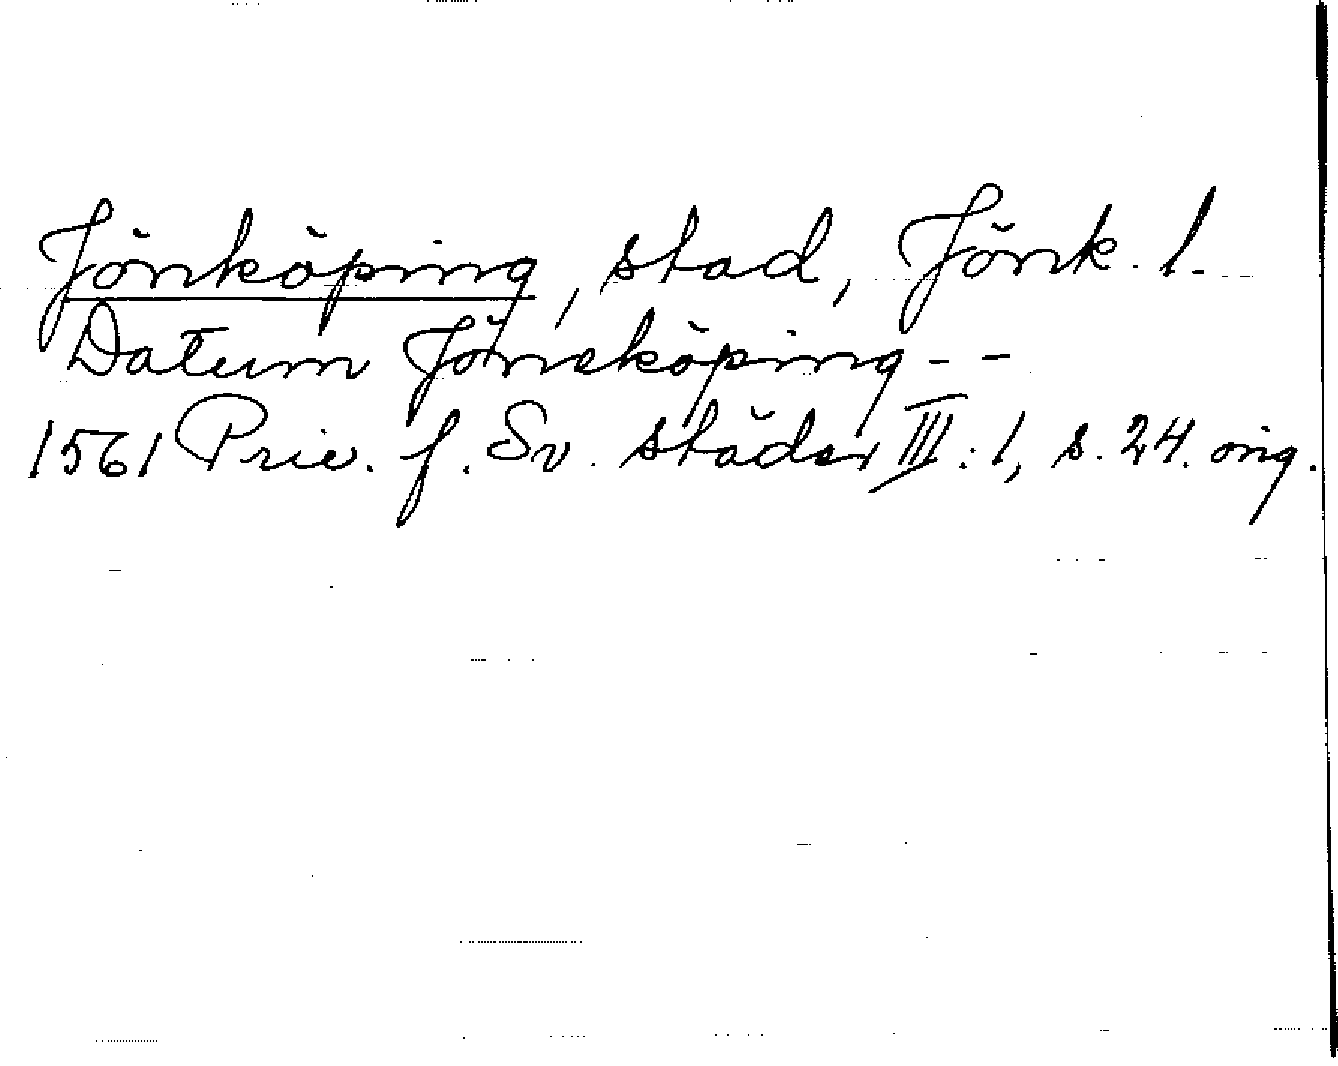 Jönköping, stad, Jönk. l.
Datum Jöneköping - -
1561 Priv. f. Sv. städer III: 1, s. 24. orig.